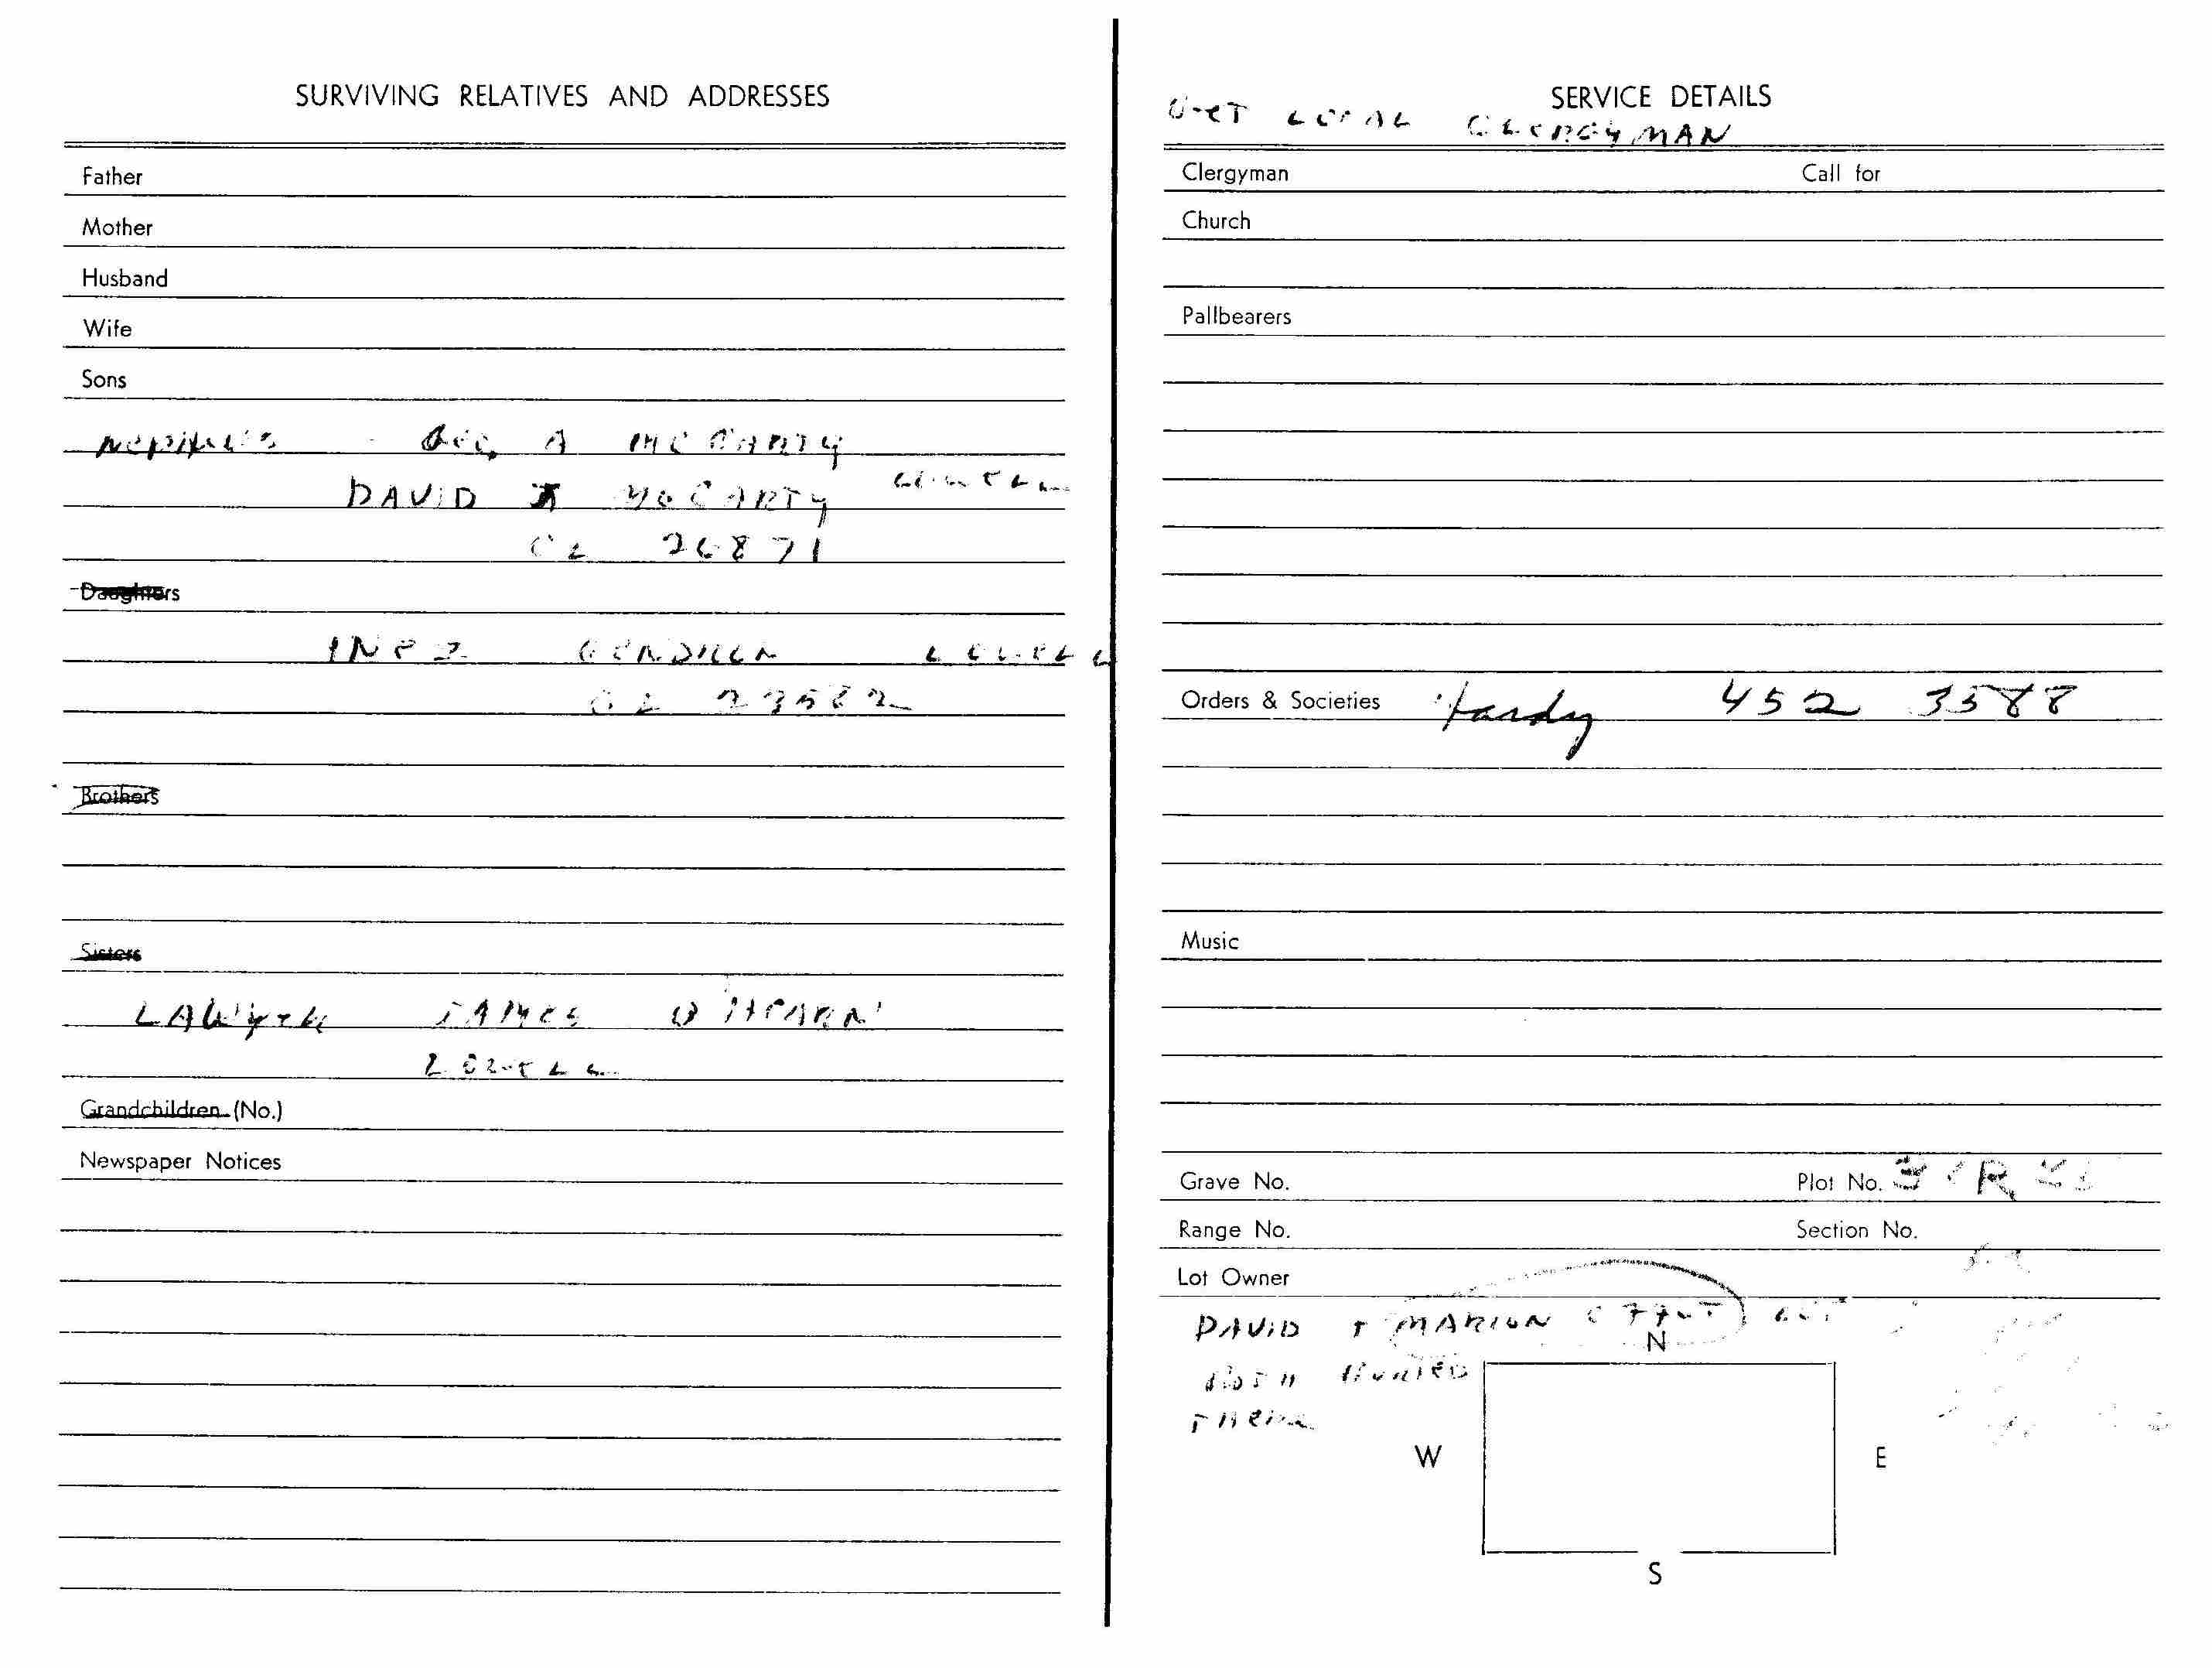 SURVIVING RELATIVES AND ADDRESSES
Father
Mother
Husband
Wife
Sons
NEPHEWS - GEO A MC CARTY
DAVID MCCARTY LOWELL
GL 26871
Daughters
INEZ LOWELL
GL 23582
Brothers
Sisters
LAWYER JAMES O'HEARN
LOWELL
Grandchildren (No.)
Newspaper Notices
SERVICE DETAILS
GET LOCAL CLERGYMAN
Clergyman Call for
Church
Pallbearers
Orders & Societies Hardy 452 3588
Music
Grave No. Plot No.
Range No. Section No.
Lot Owner
DAVID + MARION
BOTH BURIED
THERE
N
W E
S